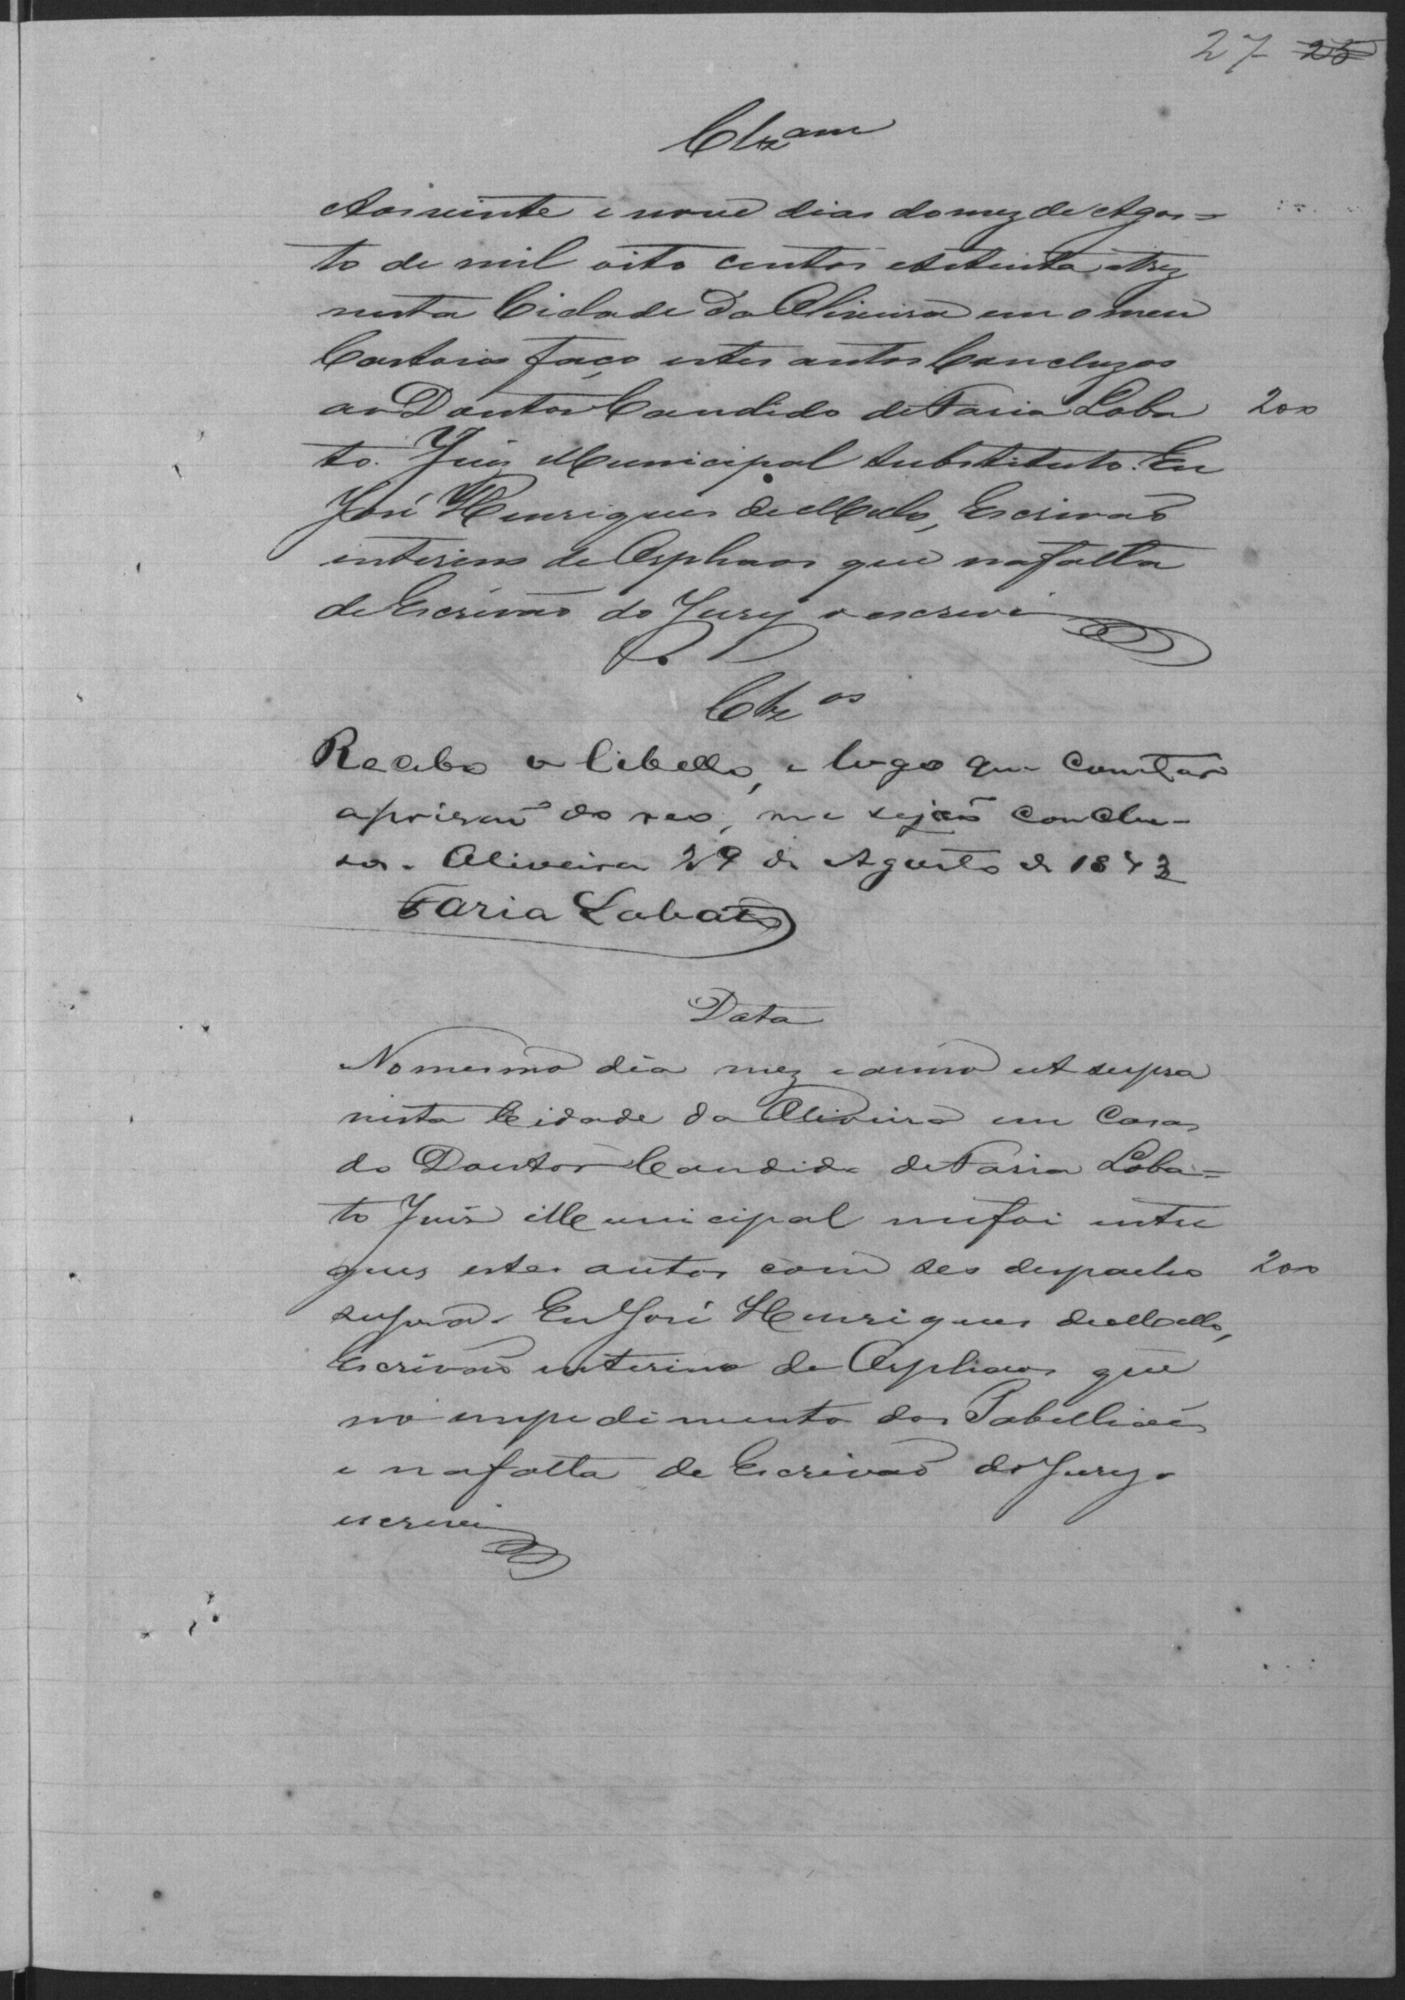 27 25
Clzam
Aos vinte e nove dias do mez de Agos=
to de mil oito centos e setenta e trez
nesta Cidade da Oliveira em o meu
Cartorio faço estes autos Concluzos
ao Doutor Candido de Faria Loba 200
to. Juiz Municipal substituto. Eu
José Henriques de Mello, Escrivão
interino de Orphaos que na falta
de Escrivão do Jury o escrevi
Clzos
Recebo o libello, e logo que constar
a prisão do reo, me sejão conclu-
sos. Oliveira 29 de Agosto de 1873
Faria Lobato
Data
No mesmo dia mez e anno ut supra
nesta Cidade da Oliveira em Casa
do Doutor Candido de Faria Loba=
to Juiz Municipal me foi entre
gues estes autos com seo despacho 200
supra. Eu José Henriques de Mello,
Escrivão interino de Orphaos que
no impedimento dos Tabelliães
e na falta de Escrivão do Jury o
escrevi